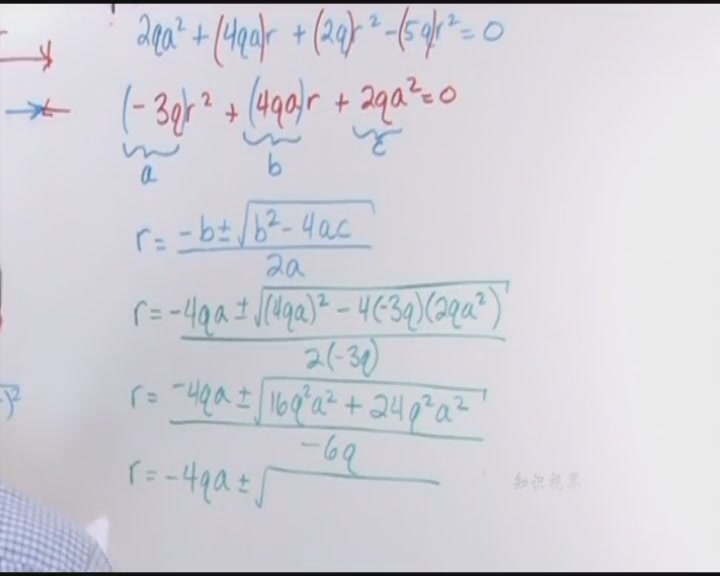 2qa² + (4qa)r + (2q)r² - (5q)r² = 0
(-3q)r² + (4qa)r + 2qa² = 0
a b c
r = -b ± √(b² - 4ac) / 2a
r = -4qa ± √((4qa)² - 4(-3q)(2qa²)) / 2(-3q)
r = -4qa ± √(16q²a² + 24q²a²) / -6q
r = -4qa ± √
知识视界